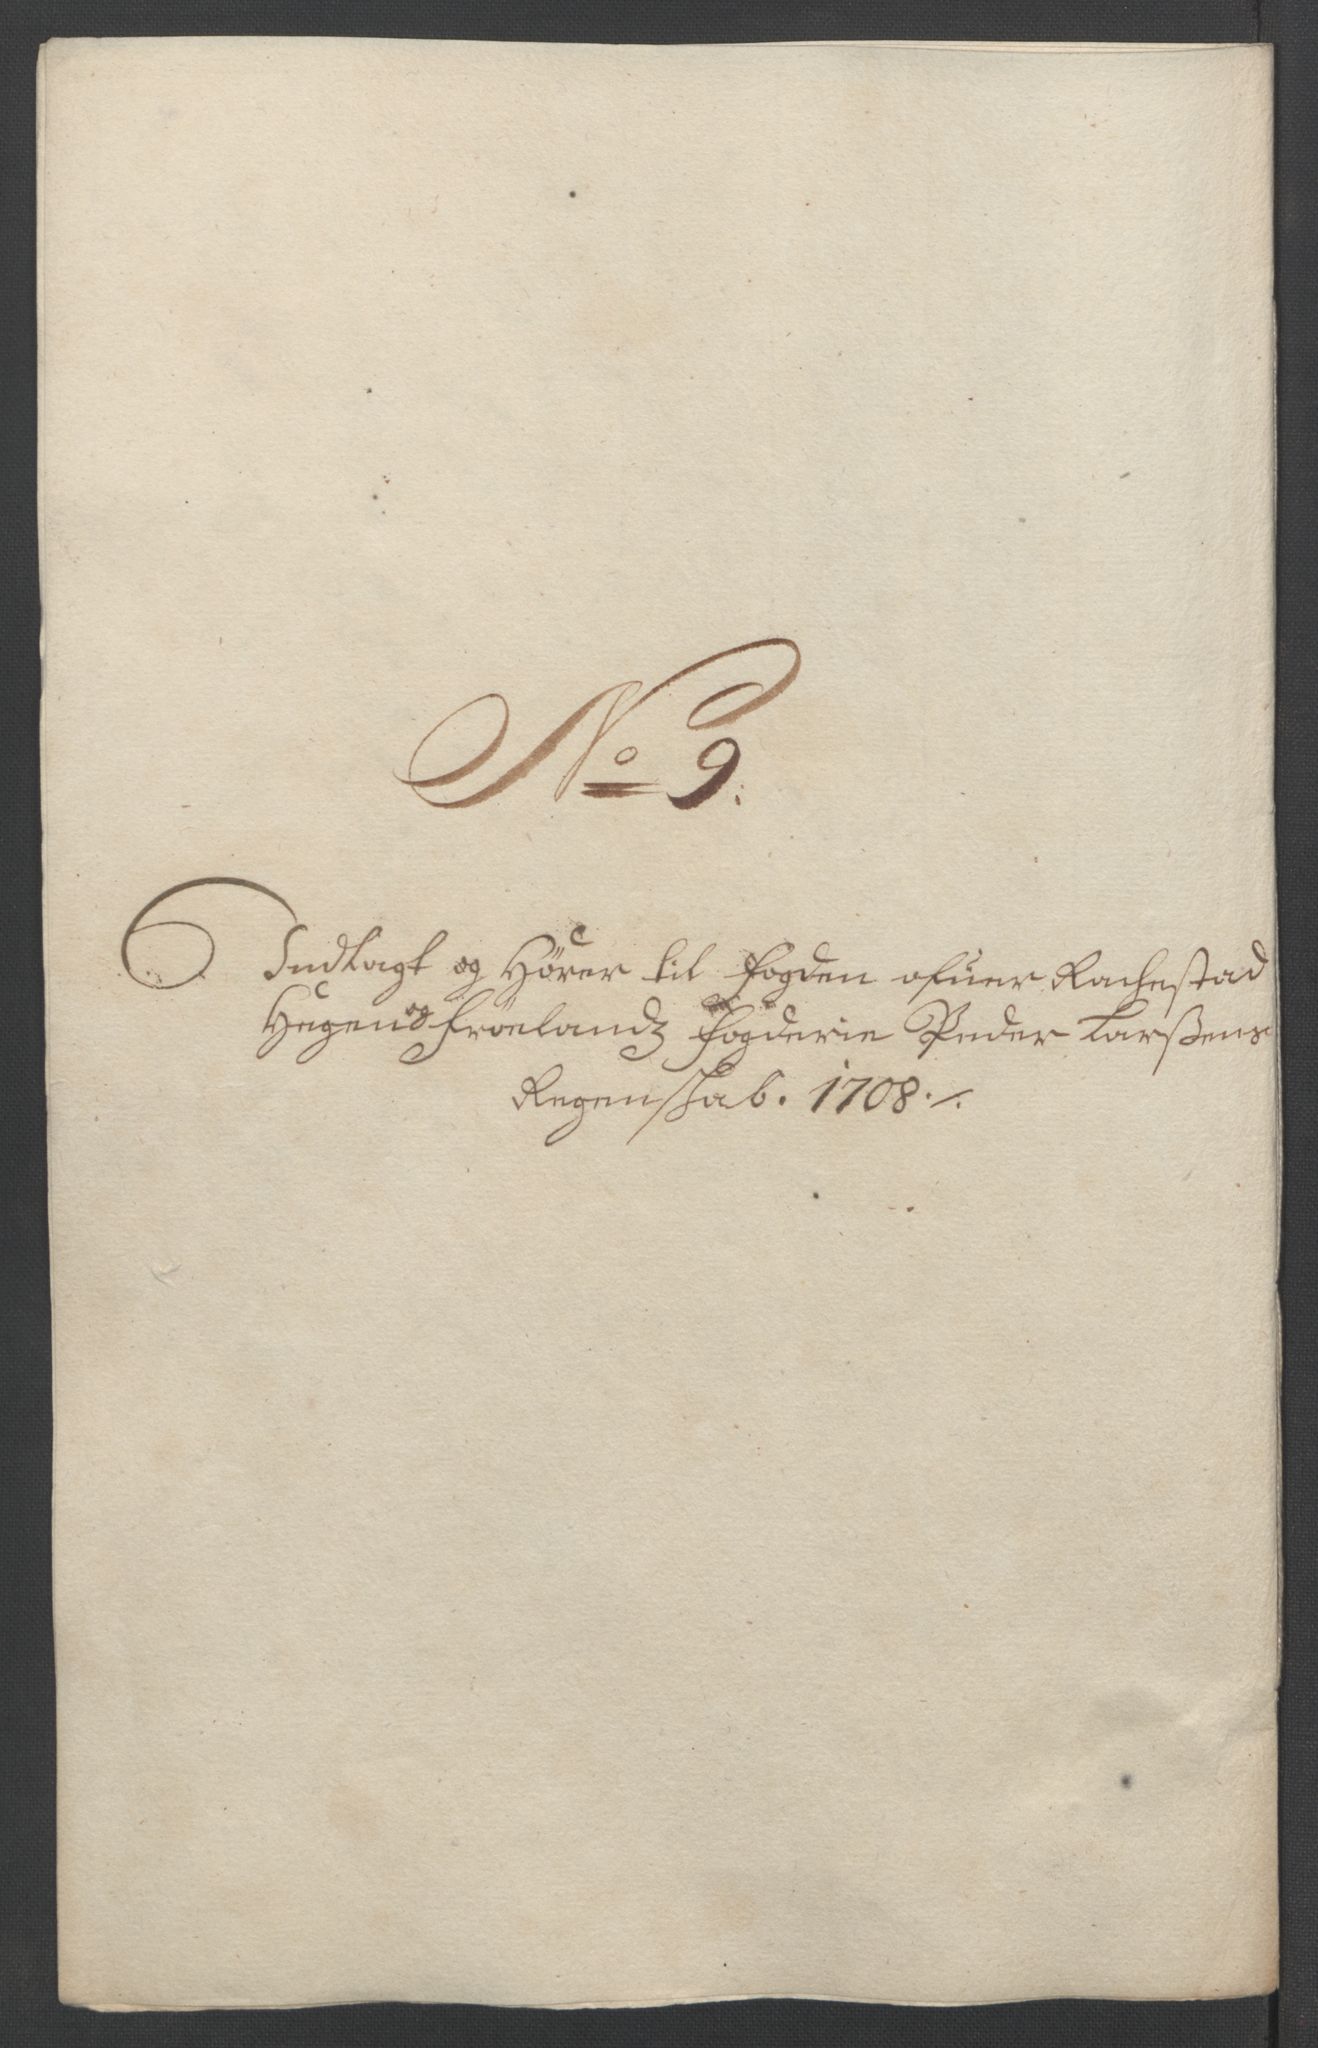 No 9.
Indlagt og Hörer til Fogden ofuer Rachestad
Hegen og Fröelandz Fogderie Peder Larßens
Regenskab. 1708 ./.